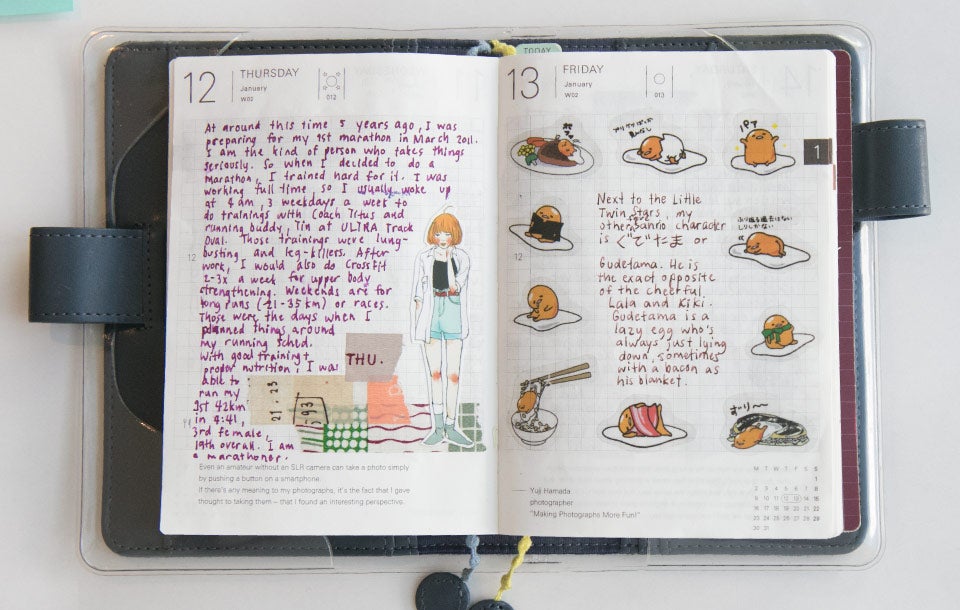 12
THURSDAY
January
W02
012
At around this time 5 years ago, I was
preparing for my 1st marathon in March 2011.
I am the kind of person who takes things
seriously. So when I decided to do a
marathon, I trained hard for it. I was
working full time, so I usually woke up
at 4am, 3 weekdays a week to
do trainings with Coach Titus and
running buddy, Tin at ULTRA Track
Oval. Those trainings were lung-
busting and leg-killers. After
work, I would also do CrossFit
2-3x a week for upper body
strengthening. Weekends are for
long runs (21-35 km) or races.
Those were the days when I
planned things around
my running sched.
With good training +
proper nutrition, I was
able to
run my
1st 42km
in 4:41,
3rd female,
19th overall. I am
a marathoner.
12
THU.
21.23
193
Even an amateur without an SLR camera can take a photo simply
by pushing a button on a smartphone.
If there's any meaning to my photographs, it's the fact that I gave
thought to taking them – that I found an interesting perspective.
TODAY
13
FRIDAY
January
W02
013
1
12
Next to the Little
Twin Stars, my
other Sanrio character
is ぐでたま or
Gudetama. He is
the exact opposite
of the cheerful
Lala and Kiki.
Gudetama is a
lazy egg who's
always just lying
down, sometimes
with a bacon as
his blanket.
すーり〜
Yuji Hamada
photographer
"Making Photographs More Fun!"
M T W T F S S
1
2 3 4 5 6 7 8
9 10 11 12 13 14 15
16 17 18 19 20 21 22
23 24 25 26 27 28 29
30 31